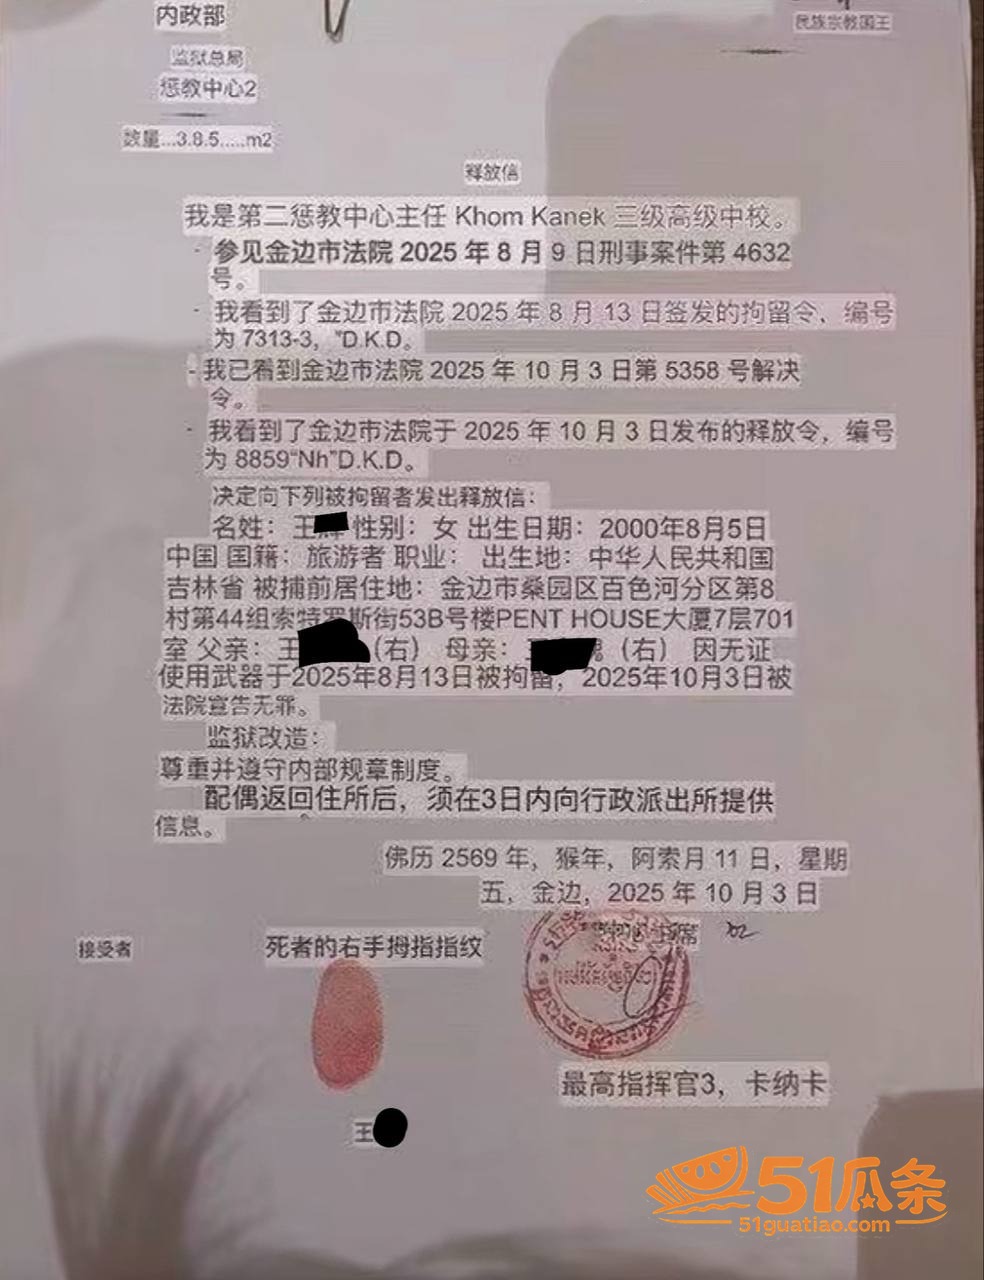 内政部
民族宗教国王
监狱总局
惩教中心2
数量...3.8.5.....m2
释放信
我是第二惩教中心主任 Khom Kanek 三级高级中校。
- 参见金边市法院 2025 年 8 月 9 日刑事案件第 4632
号。
- 我看到了金边市法院 2025 年 8 月 13 日签发的拘留令，编号
为 7313-3，"D.K.D。
- 我已看到金边市法院 2025 年 10 月 3 日第 5358 号解决
令。
- 我看到了金边市法院于 2025 年 10 月 3 日发布的释放令，编号
为 8859“Nh”D.K.D。
决定向下列被拘留者发出释放信：
名姓： 王 性别：女 出生日期：2000年8月5日
中国 国籍：旅游者 职业： 出生地：中华人民共和国
吉林省 被捕前居住地：金边市桑园区百色河分区第8
村第44组索特罗斯街53B号楼PENT HOUSE大厦7层701
室 父亲：王 （右） 母亲： （右） 因无证
使用武器于2025年8月13日被拘留，2025年10月3日被
法院宣告无罪。
监狱改造：
尊重并遵守内部规章制度。
配偶返回住所后，须在3日内向行政派出所提供
信息。
佛历 2569 年，猴年，阿索月 11 日，星期
五，金边，2025 年 10 月 3 日
席
接受者
死者的右手拇指指纹
最高指挥官3，卡纳卡
王
51瓜条
51guatiao.com